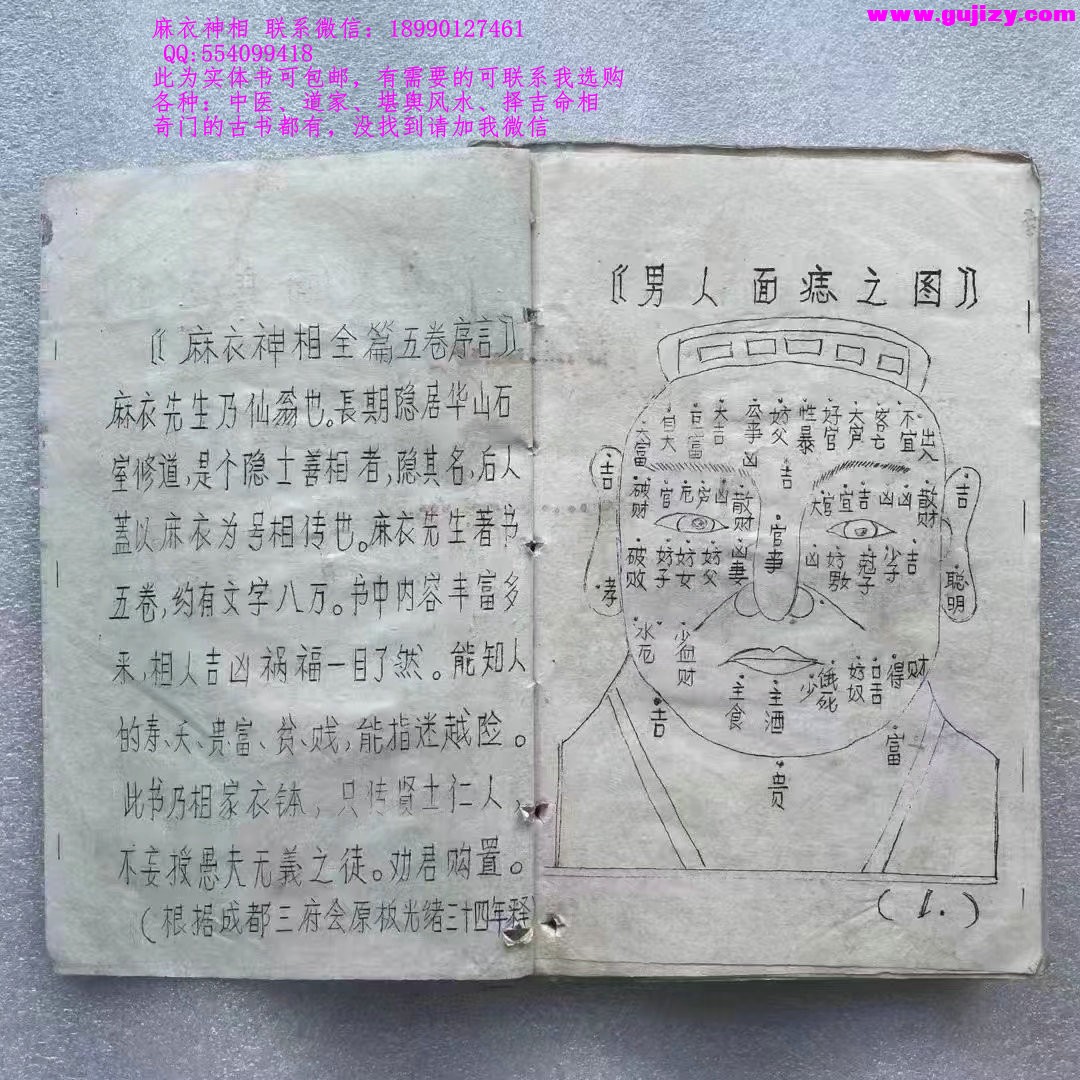 麻衣神相 联系微信：18990127461
QQ:554099418
此为实体书可包邮，有需要的可联系我选购
各种：中医、道家、堪舆风水、择吉命相
奇门的古书都有，没找到请加我微信
www.gujizy.com
《麻衣神相全篇五卷序言》
麻衣先生乃仙翁也。長期隐居华山石
室修道,是个隐士善相者,隐其名,后人
蓋以麻衣为号相传也。麻衣先生著书
五卷,约有文字八万。书中内容丰富多
采,相人吉凶祸福一目了然。能知人
的寿、夭、贵、富、贫、贱,能指迷越险。
此书乃相家衣钵,只传贤士仁人,
不妄授愚夫无義之徒。劝君购置。
(根据成都三府会原板光绪三十四年释)
《男人面痣之图》
大富
自大
巨富
大吉
公事凶
妨父
性暴
好官
大芦
客亡
不宜
出入
吉
吉
破财
官
厄
穷
凶
散财
官事
大富
宜
吉
凶
凶
散财
吉
孝
破败
妨子
妨女
妨父
凶妻
凶
妨男
尅子
少子
吉
聪明
水厄
少血财
主食
主酒
少
饿死
妨奴
吉
得财
吉
富
贵
(1.)